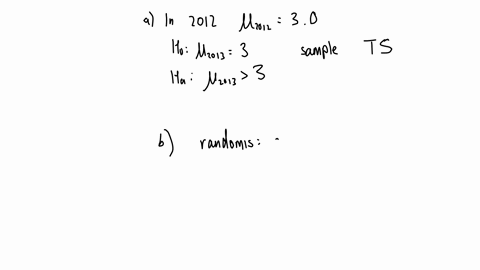 a) In 2012 μ2012 = 3.0
H0: μ2013 = 3 sample TS
Ha: μ2013 > 3
b) randomis: -